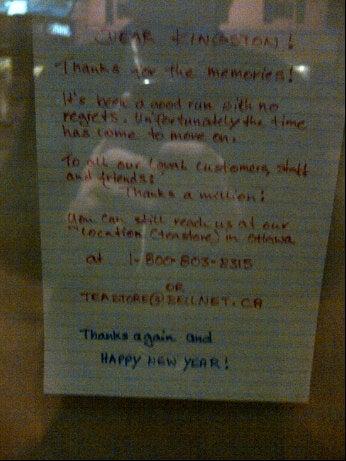 DEAR KINGSTON!
Thanks for the memories!
It's been a good run with no
regrets. Unfortunately the time
has come to move on.
To all our loyal customers, staff
and friends:
Thanks a million!
You can still reach us at our
location (teastore) in Ottawa
at 1-800-803-8315
OR
TEASTORE@BELLNET.CA
Thanks again and
HAPPY NEW YEAR!